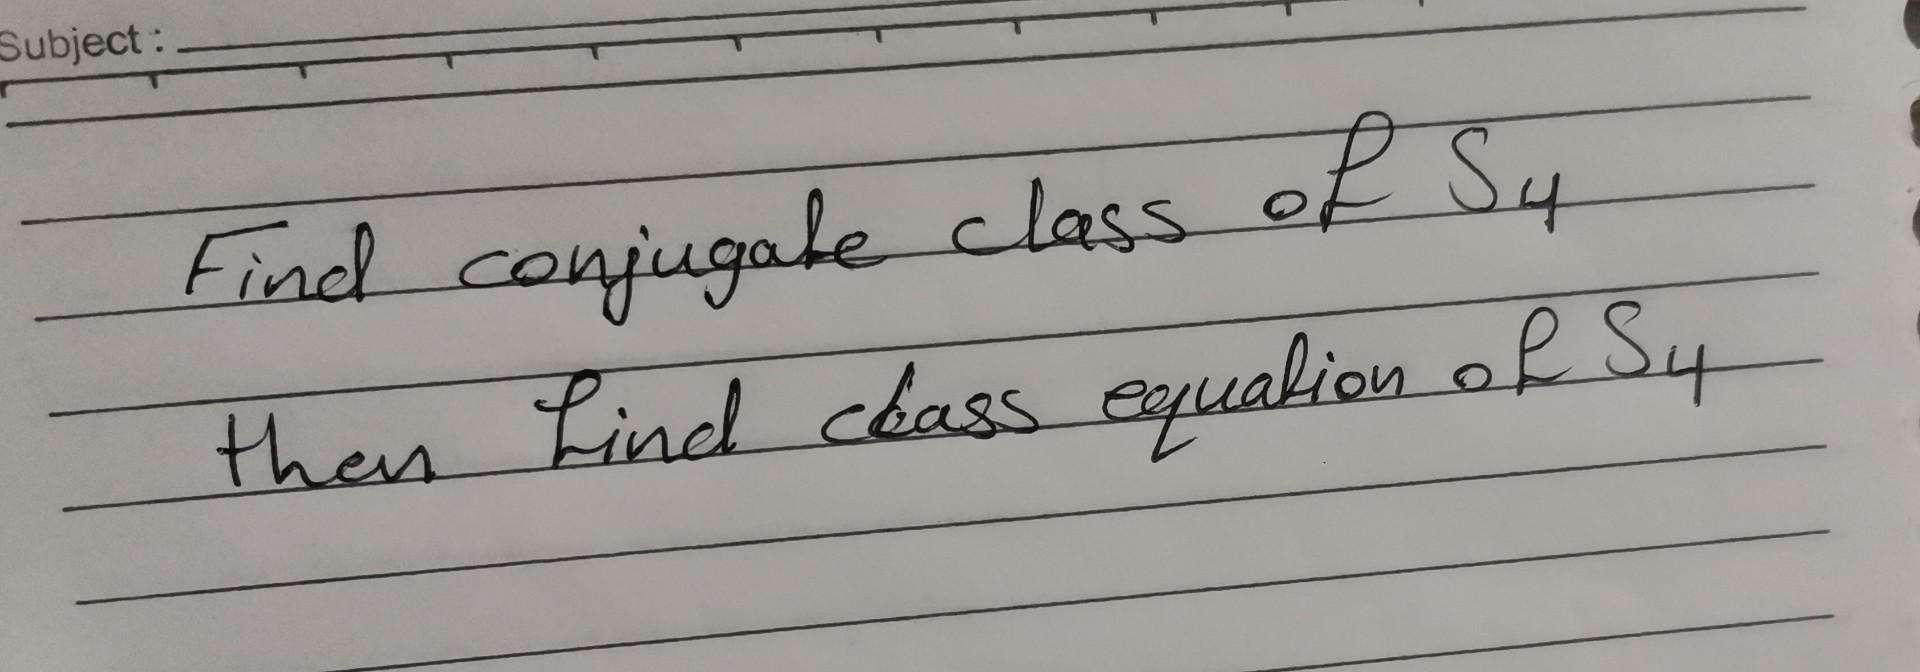 Subject:
Find conjugate class of S4
then find class equation of S4